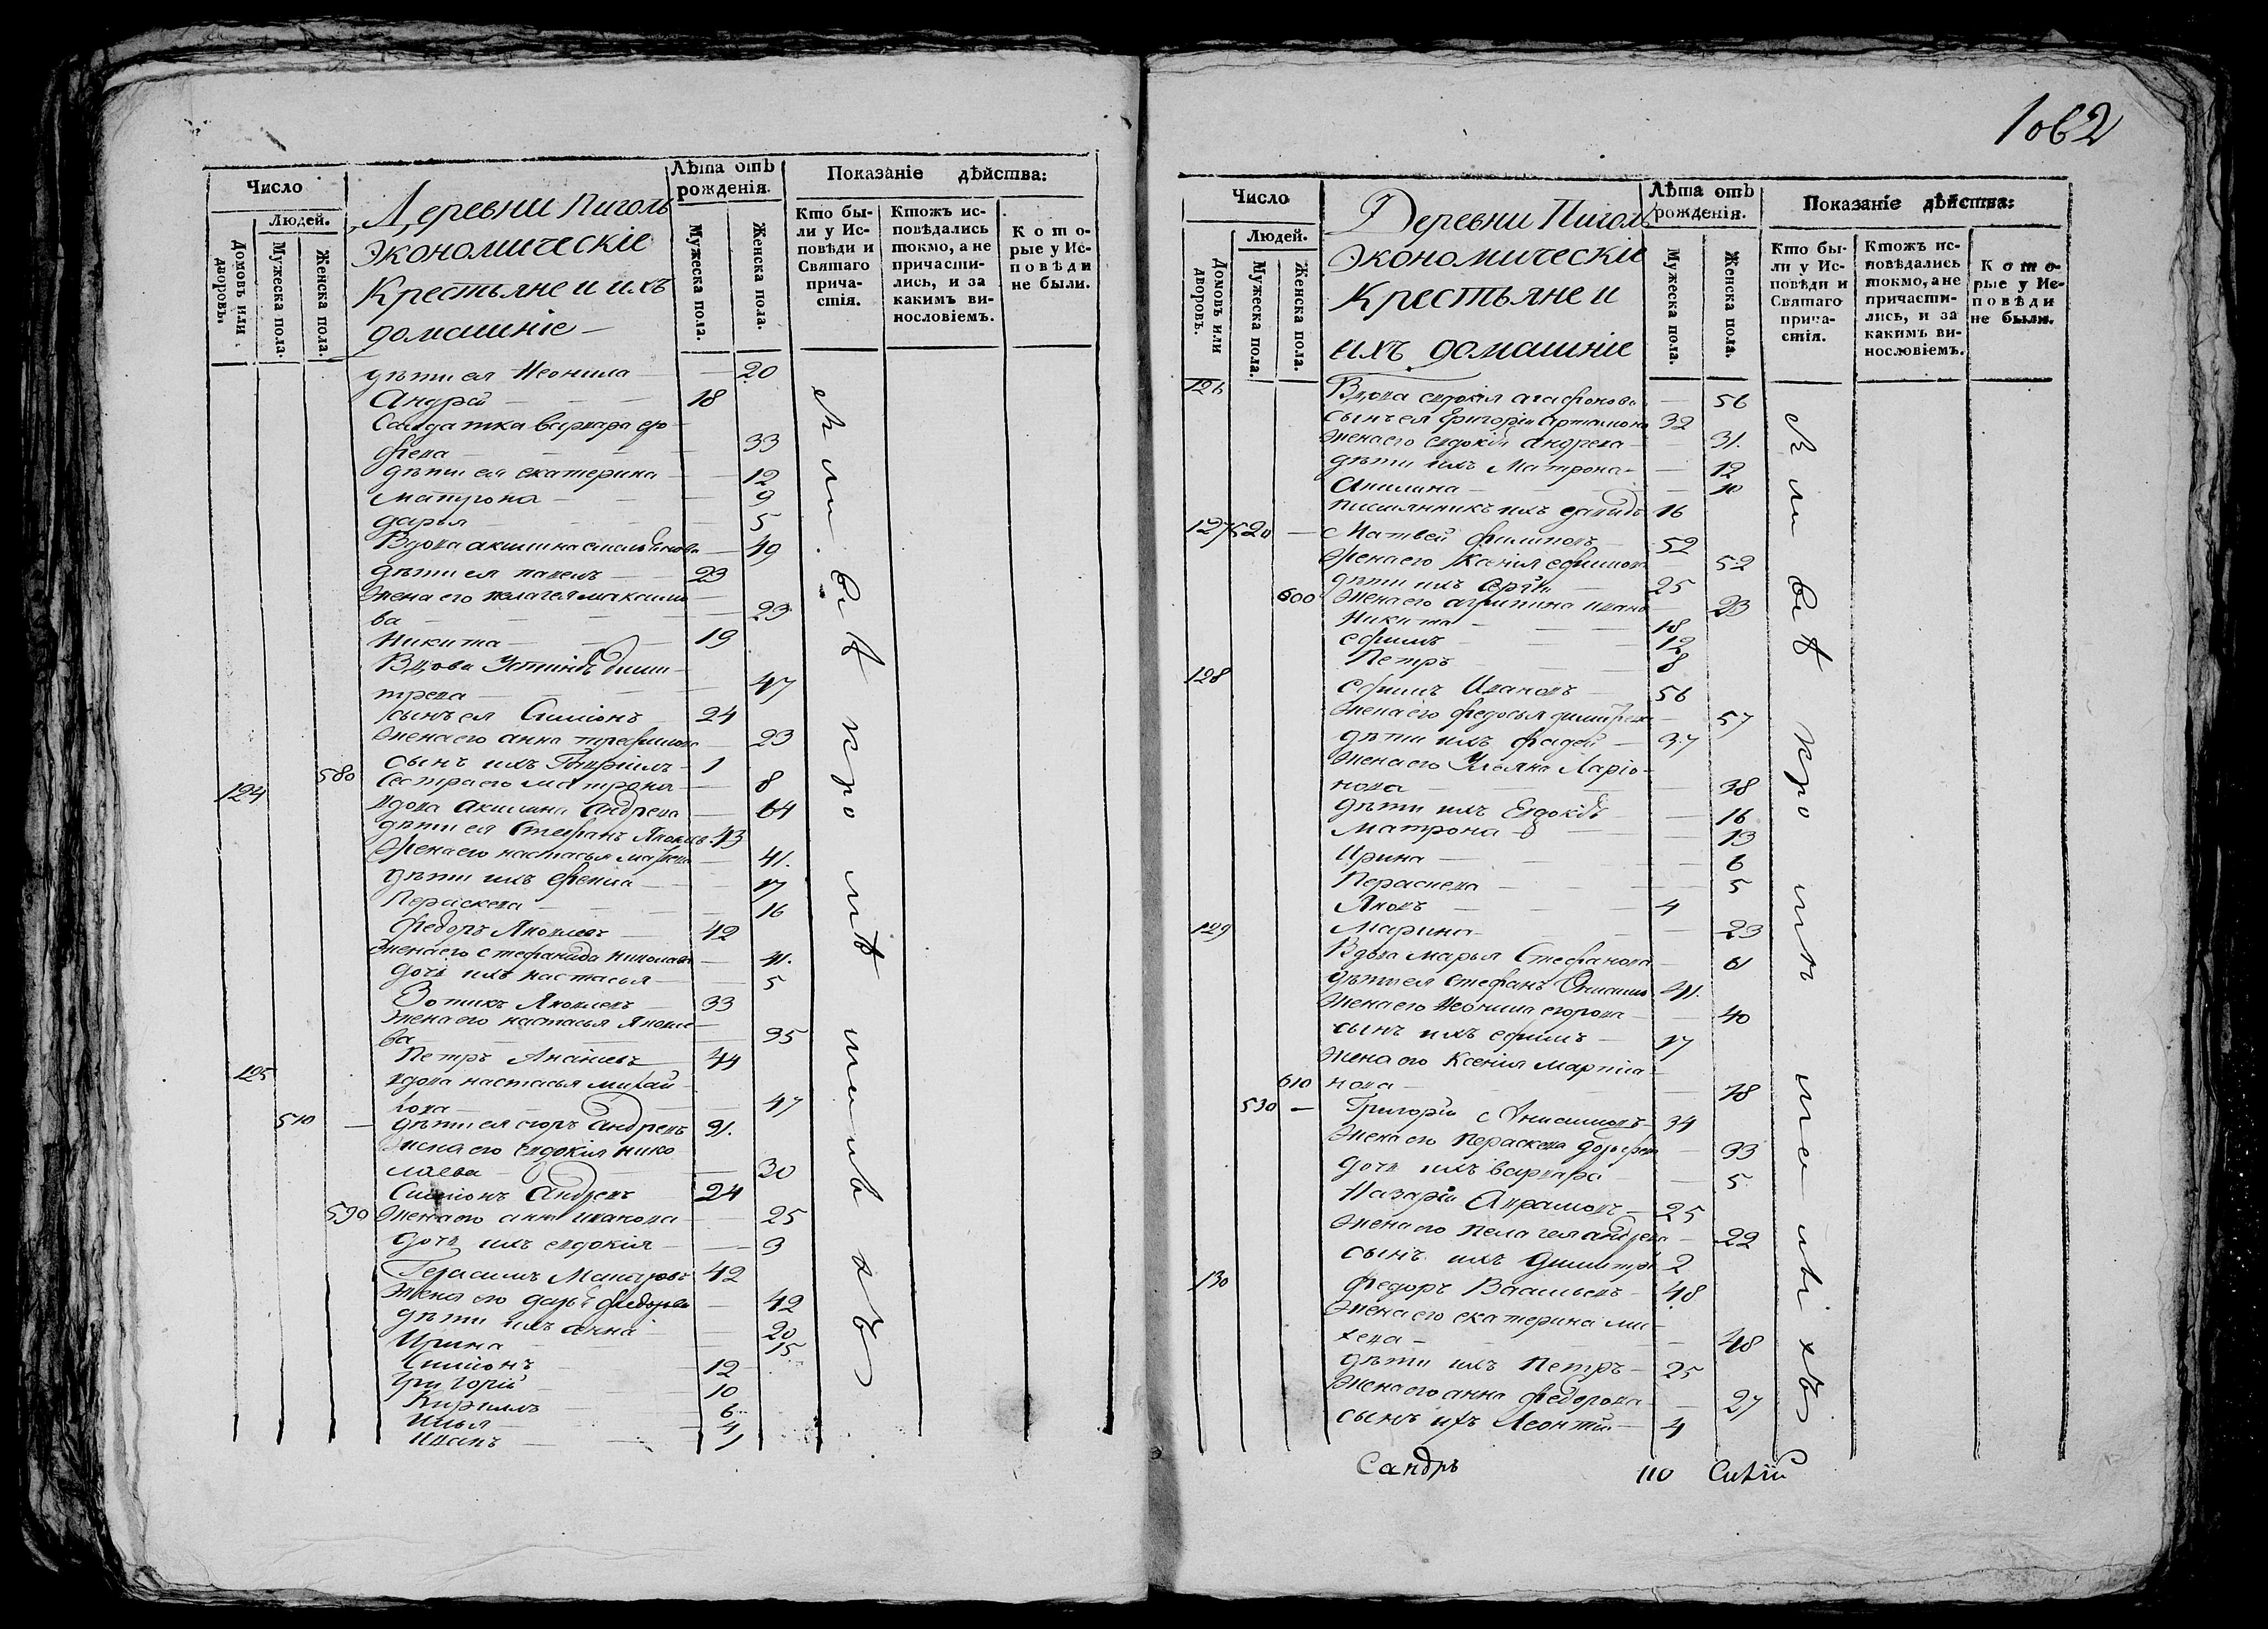 Число
Людей.
Домовъ или дворовъ.
Мужеска пола.
Женска пола.
Деревни Пиголь
Экономическіе
Крестьяне и ихъ
домашніе
Лѣта отъ рожденія.
Мужеска пола.
Женска пола.
Показаніе дѣйства:
Кто бы-
ли у Ис-
повѣди и
Святаго
прича-
стія.
Ктожъ ис-
повѣдались
токмо, а не
причасти-
лись, и за
какимъ ви-
нословіемъ.
Кото-
рые у Ис-
повѣди
не были.
дѣти ея Неонила 20
Андрей 18
Салдатка варвара
33
дѣти ея екатерина 12
Матрона 9
дарья 5
Вдова акилина 49
дѣти ея павелъ 23
Жена его пелагея максимо
ва 23
Никита 19
Вдова Устинья дими
трева 47
сынъ ея Симіонъ 24
Жена его анна трефилова 23
сынъ ихъ Гавріилъ 1
580 Сестра его матрона 8
124 вдова Акилина Андрева 64
дѣти ея Стефанъ Яковлъ 43
Жена его настасья 41.
дѣти ихъ 17
Пераскева 16
Федоръ Яковлевъ 42
Жена его стефанида николаева 41.
дочь ихъ настасья 5
Зотикъ Яковлевъ 33
Жена его настасья Яковле
ва 35
Петръ Ананіевъ 44
125 вдова настасья михай
лова 47
510 дѣти ея егоръ Андревъ 31.
Жена его евдокія нико
лаева 30
Симіонъ Андревъ 24
590 Жена его анна иванова 25
дочь ихъ евдокія 3
Герасимъ 42
Жена его дарья федорова 42
дѣти ихъ анна 20
Ирина 15
Симіонъ 12
Григорій 10
Кирилъ 6
Илья 4
Иванъ 1
1062
Число
Людей.
Домовъ или дворовъ.
Мужеска пола.
Женска пола.
Деревни Пиголь
Экономическіе
Крестьяне и
ихъ домашніе
Лѣта отъ рожденія.
Мужеска пола.
Женска пола.
Показаніе дѣйства:
Кто бы-
ли у Ис-
повѣди и
Святаго
прича-
стія.
Ктожъ ис-
повѣдались
токмо, а не
причасти-
лись, и за
какимъ ви-
нословіемъ.
Кото-
рые у Ис-
повѣди
не были.
126 Вдова евдокія агафонова 56
сынъ ея Григорій артамоно 32
Жена его евдокія андрева 31.
дѣти ихъ Матрона 12
Акилина 10
ихъ 16
127 520 Матвей филиповъ 52
Жена его Ксенія ефимова 52
дѣти ихъ 25
600 Жена его агрипина ивано 23
Никита 18
ефимъ 12
Петръ 8
128 ефимъ Ивановъ 56
Жена его федосья димитрева 57
дѣти ихъ фадей 37
Жена его Ульяна Ларіо
нова 38
дѣти ихъ Евдокія 16
Матрона 13
Ирина 6
Пераскева 5
Яковъ 4
129 Марина 23
Вдова марья Стефанова 61
дѣти ея стефанъ Онисимо 41.
Жена его Неонила егорова 40
сынъ ихъ ефимъ 17
Жена его Ксенія Мартиа
610 нова 18
530 Григорій Анисимовъ 34
Жена его Пераскева дорофева 33
дочь ихъ варвара 5
Назарій Аврамовъ 25
Жена его Пелагея андрева 22
сынъ ихъ димитрі 2
130 федоръ Васильевъ 48
Жена его екатерина ми
хева 48
дѣти ихъ Петръ 25
Жена его анна федорова 27
сынъ ихъ Леонтій 4
Сандръ 110